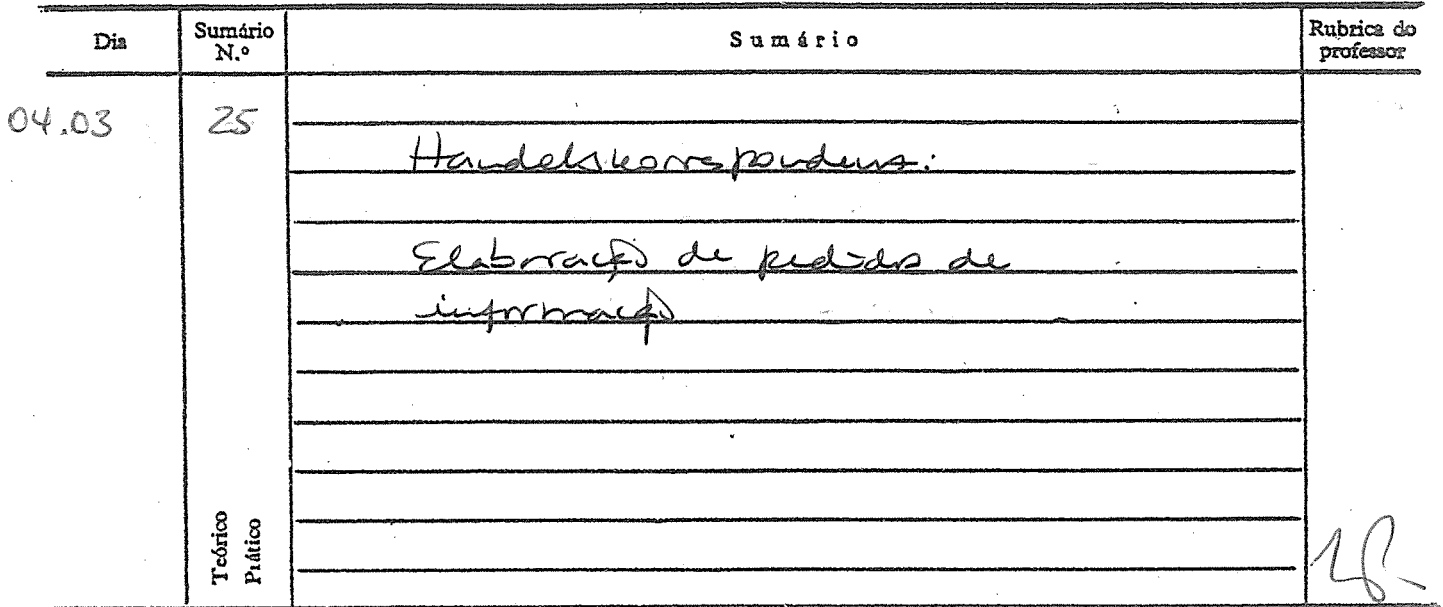 Dia
Sumário N.º
Sumário
Rubrica do professor
04.03
25
Handelskorrespondenz:
Elaboração de pedidos de
informação
Teórico
Prático